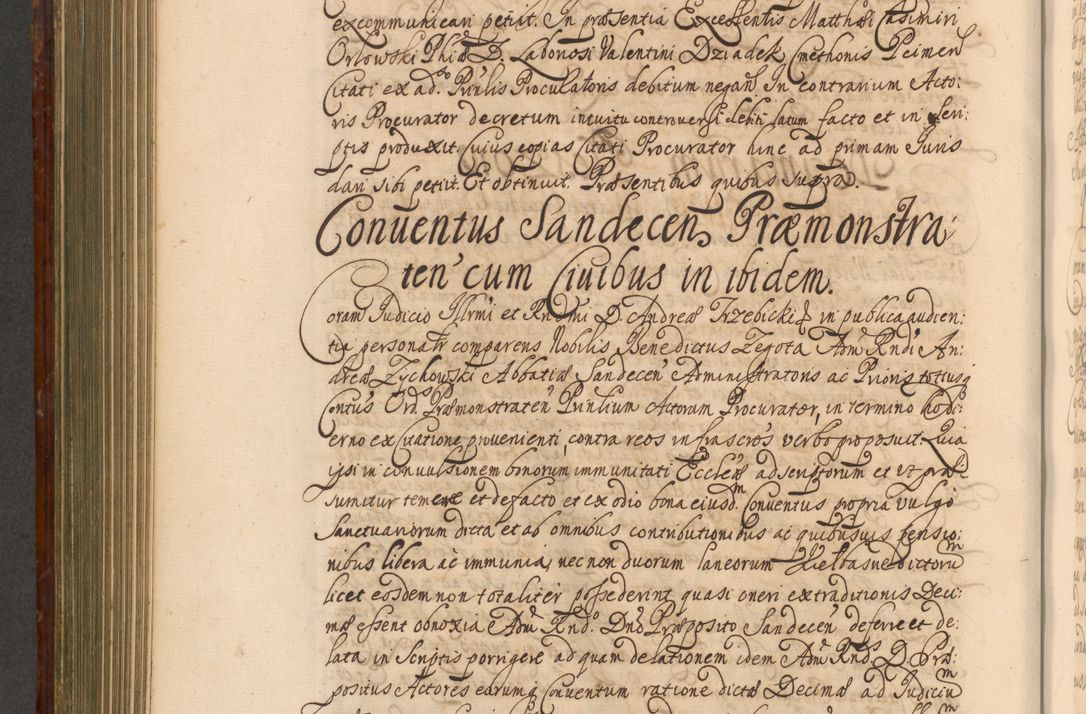 excommunicari petiit. In præsentia Excellentis Matthæi Casimiri
Orłowski Phiæ D. Laboriosi Valentini Dziadek Cmethonis Peimen
Citati ex ad. Prinlis Proculatoris debitum negan. In contrarium Acto:
ris Procurator decretum intuitu controversi debiti latum facto et in Scri:
ptis produxit. Cuius copias Citati Procurator hinc ad primam Juris
dari sibi petiit. Et obtinuit. Præsentibus quibus supra.
Conventus Sandecen Præmonstra
ten cum Ciuibus in ibidem.
Coram Iudicio Illrmi et Rndmi D. Andreæ Trzebicki in publica audien:
tia personatr comparens Nobilis Benedictus Zegota Adm Rndi An:
dreæ Zychowski Abbatiæ Sandecen Administratoris ac Prioris totiusq
Contus Ord. Præmonstraten Prinlium Actorum Procurator, in termino hodi:
erno ex Citatione provenienti, contra reos infrascros verbo proposuit. Quia
ipsi in convulsionem bonorum immunitati Eccleæ adscriptorum et vt præ
sumitur temere et defacto et ex odio bona eiusdm Conventus propria vulgo
Sanctuariorum dicta et ab omnibus contributionibus ac quibusvis pensio:
nibus libera ac immunia, nec non duorum laneorum Kiełbasne dictorum
licet eosdem non totaliter possederint quasi oneri extraditionis Deci:
mæ essent obnoxia Adm Rndo. Dno Præposito Sandecen deferre et de:
lata in Scriptis porrigere ad quam delationem idem Adm Rnds D. Præ:
positus Actores earumq Conventum ratione dictæ Decimæ ad Iudicium